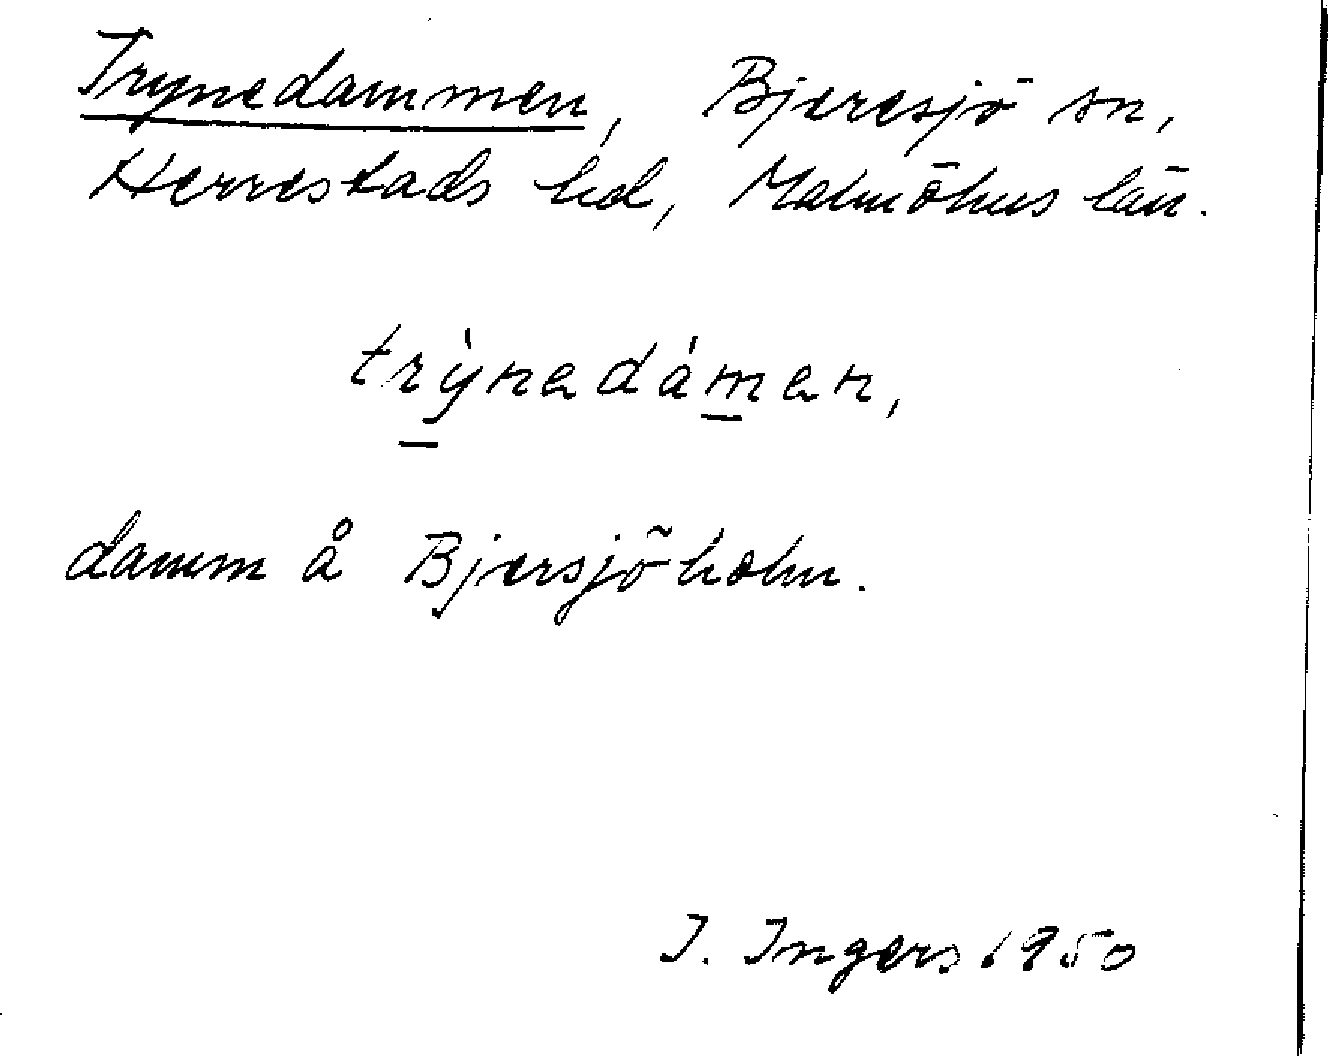 Trynedammen, Bjeresjö sn,
Herrestads hd, Malmöhus län.
trỳnadáman,
damm å Bjersjöholm.
I. Ingers 1950